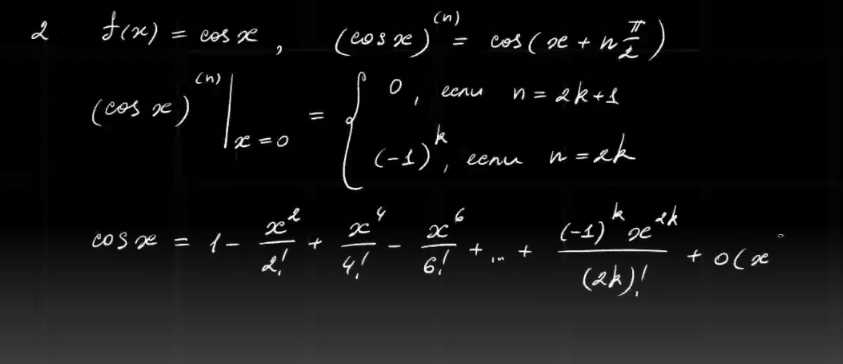 2 f(x) = cos x , (cos x)^(n) = cos(x + n π/2)
(cos x)^(n) |_{x=0} = { 0, если n = 2k+1
(-1)^k, если n = 2k
cos x = 1 - x^2/2! + x^4/4! - x^6/6! + ... + (-1)^k x^{2k}/(2k)! + o(x